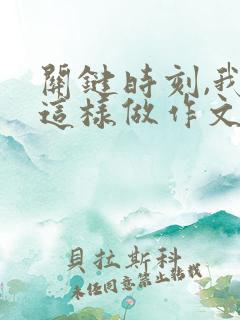 關鍵時刻,我
這樣做作文
貝拉斯科
未經同意禁止轉載